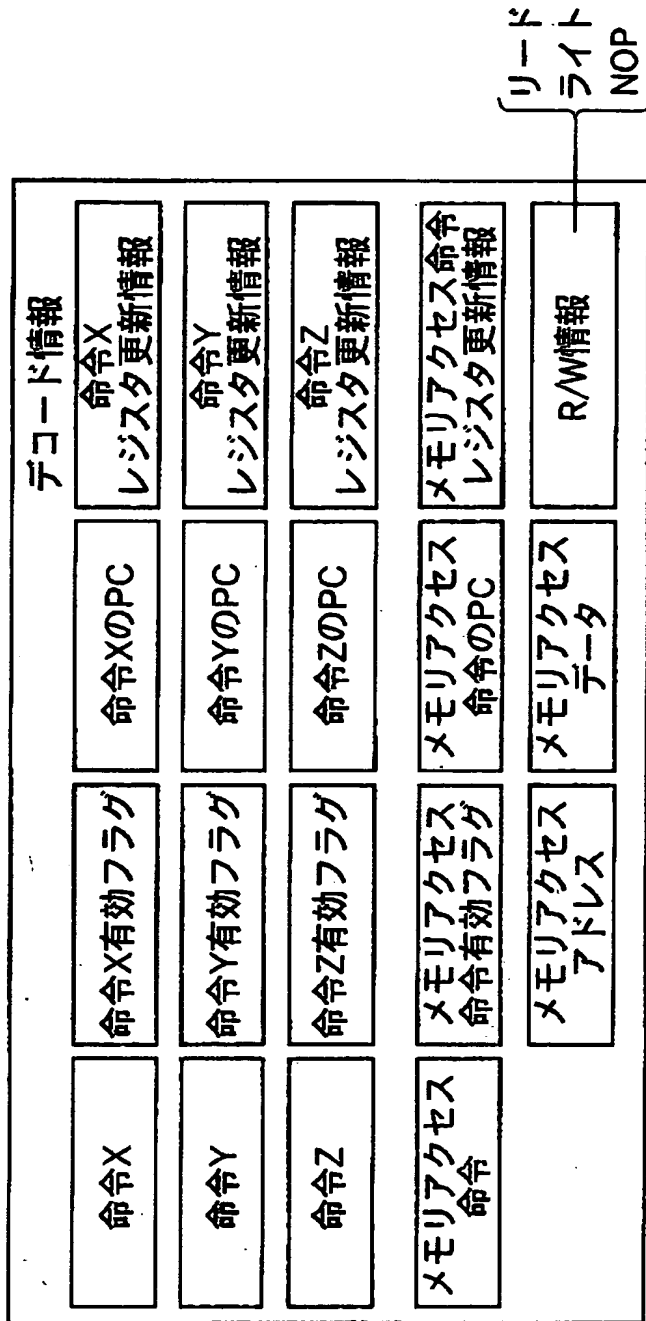 デコード情報
命令X
命令X有効フラグ
命令XのPC
命令X
レジスタ更新情報
命令Y
命令Y有効フラグ
命令YのPC
命令Y
レジスタ更新情報
命令Z
命令Z有効フラグ
命令ZのPC
命令Z
レジスタ更新情報
メモリアクセス
命令
メモリアクセス
命令有効フラグ
メモリアクセス
命令のPC
メモリアクセス命令
レジスタ更新情報
メモリアクセス
アドレス
メモリアクセス
データ
R/W情報
リード
ライト
NOP